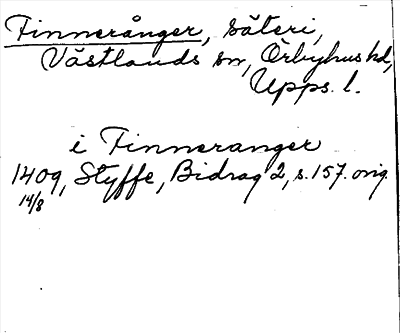 Finnerånger, säteri,
Västlands sn, Örbyhus hd,
Upps. l.
i Finneranger
1409, Styffe, Bidrag 2, s. 157. orig.
14/8